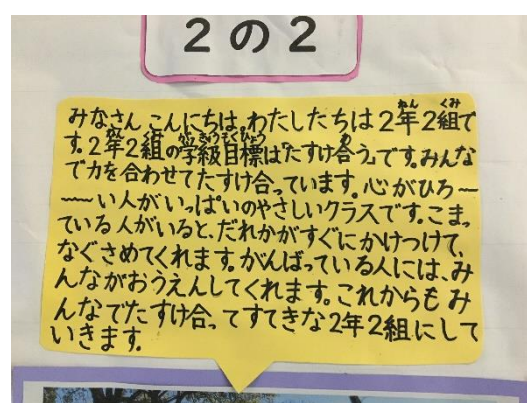 2の2
みなさん、こんにちは。わたしたちは2年2組で
す。2年2組の学級目標は「たすけ合う」です。みんな
で力を合わせてたすけ合っています。心がひろ〜
〜い人がいっぱいのやさしいクラスです。こまっ
ている人がいると、だれかがすぐにかけつけて、
なぐさめてくれます。がんばっている人には、み
んながおうえんしてくれます。これからもみ
んなでたすけ合ってすてきな2年2組にして
いきます。